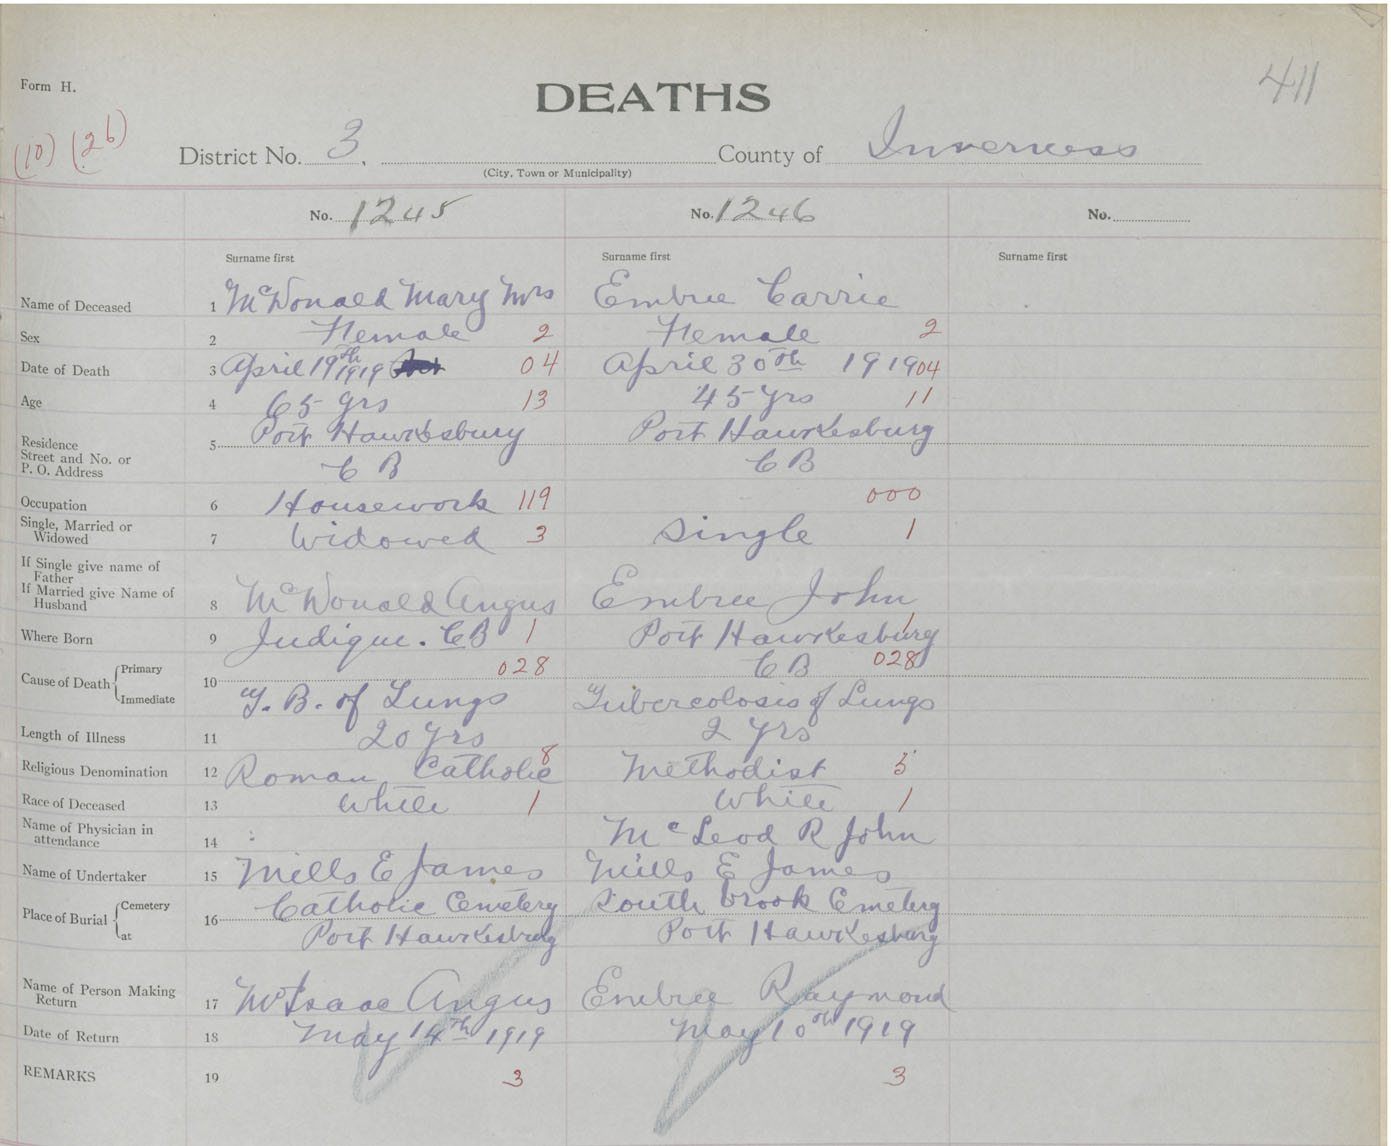 411
Form H.
DEATHS
(10) (26)
District No. 3, County of Inverness
(City, Town or Municipality)
No. 1245 No. 1246 No.
Surname first Surname first Surname first
Name of Deceased 1 McDonald Mary Mrs Embree Carrie
Sex 2 Female 2 Female 2
Date of Death 3 April 19th 1919 04 April 30th 1919 04
Age 4 65 yrs 13 45 yrs 11
Residence
Street and No. or
P. O. Address
5 Port Hawkesbury Port Hawkesburg
C B C B
Occupation 6 Housework 119 000
Single, Married or
Widowed 7 Widowed 3 Single 1
If Single give name of
Father
If Married give Name of
Husband 8 McDonald Angus Embree John
Where Born 9 Judique. CB 1 Port Hawkesburg 1
C B
Cause of Death { Primary 028 028
10
Immediate T. B. of Lungs Tubercolosis of Lungs
Length of Illness 11 20 yrs 2 yrs
Religious Denomination 12 Roman Catholic 8 Methodist 5
Race of Deceased 13 White 1 White 1
Name of Physician in
attendance 14 McLeod R John
Name of Undertaker 15 Mills E James Mills E James
Place of Burial { Cemetery Catholic Cemetery South brook Cemetery
16
at Port Hawkesburg Port Hawkesburg
Name of Person Making
Return 17 McIsaac Angus Embree Raymond
Date of Return 18 May 14th 1919 May 10th 1919
REMARKS 19 3 3